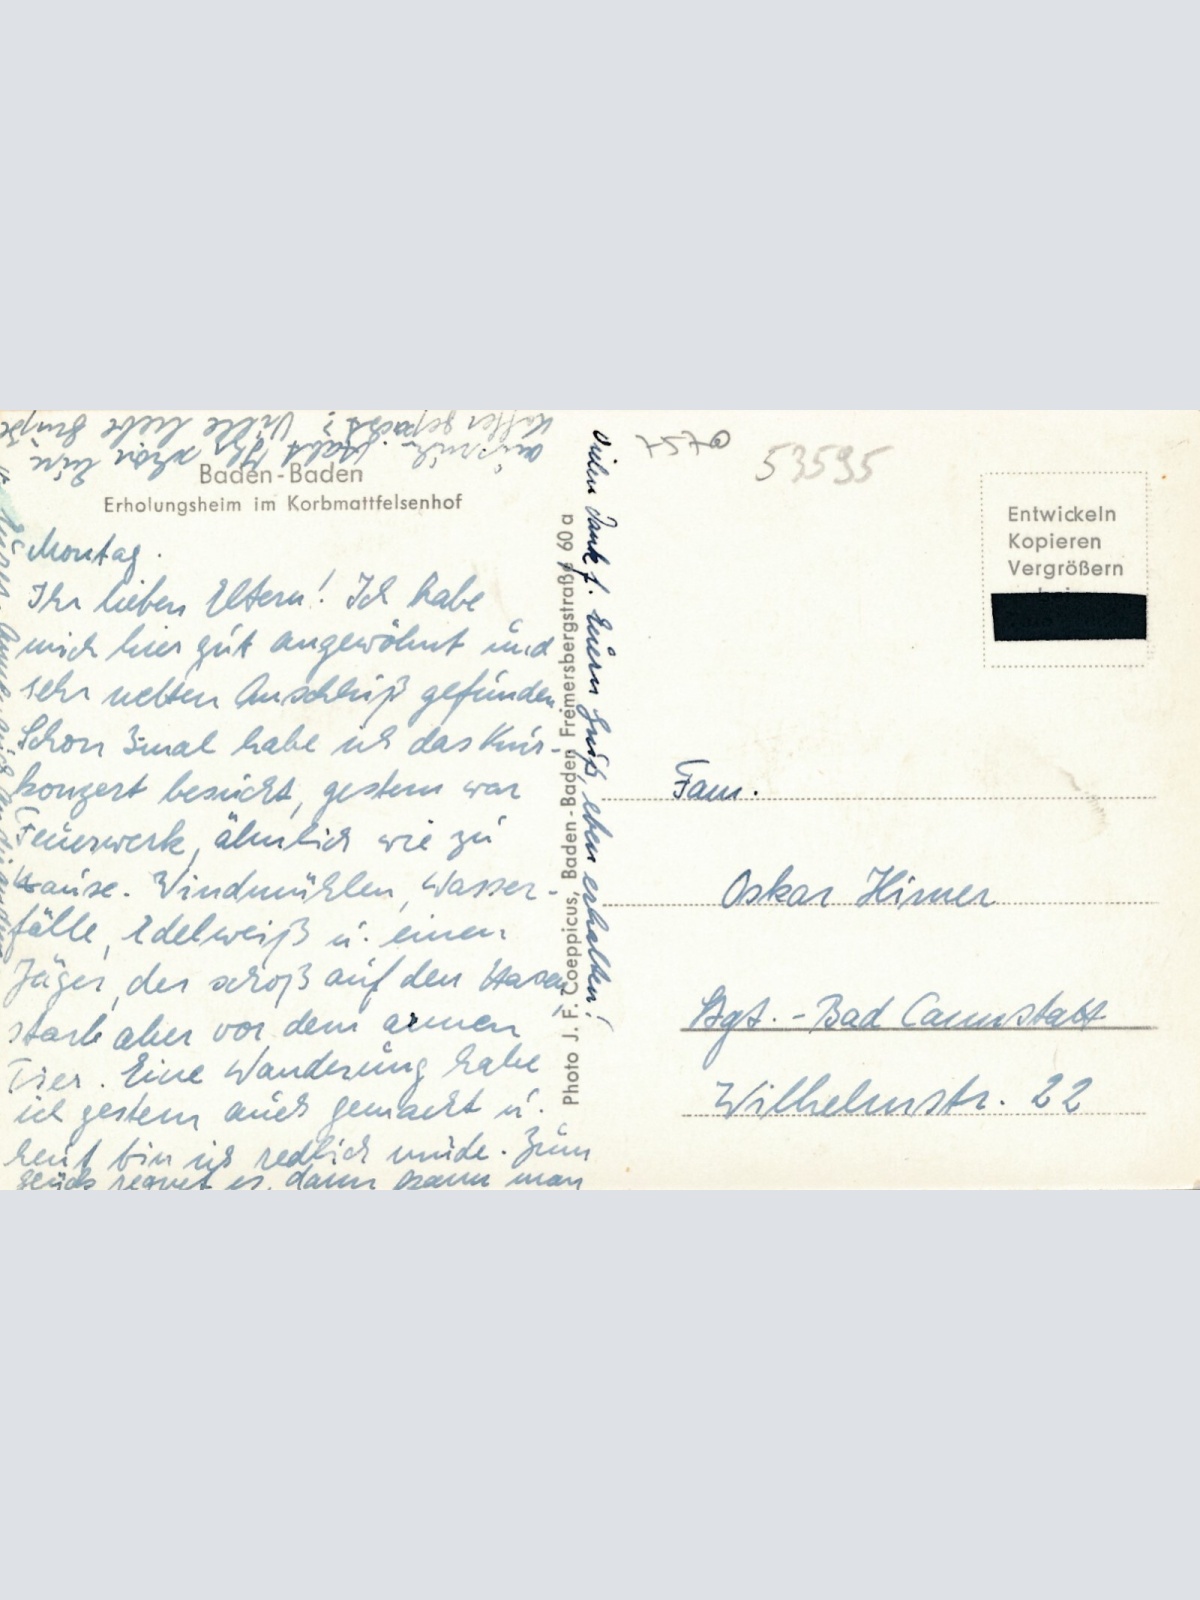 Baden-Baden
Erholungsheim im Korbmattfelsenhof
Montag.
Ihr lieben Eltern! Ich habe
mich hier gut angewöhnt und
sehr netten Anschluß gefunden.
Schon 3mal habe ich das Kur-
konzert besucht, gestern war
Feuerwerk, ähnlich wie zu
Hause. Windmühlen, Wasser-
fälle, Edelweiß u. einen
Jäger, der schoß auf den Hasen,
starb aber vor dem armen
Tier. Eine Wanderung habe
ich gestern auch gemacht u.
heut bin ich redlich müde. Zum
Glück regnet es, dann kann man
ausruhn. Habt Ihr schon Eure
Koffer gepackt? Viele liebe Grüße
Eure
Vielen Dank f. Euern Gruß, eben erhalten!
Photo J. F. Coeppicus, Baden-Baden Fremersbergstraße 60 a
7570
53595
Entwickeln
Kopieren
Vergrößern
Fam.
Oskar Hirner
Stgt.-Bad Cannstatt
Wilhelmstr. 22